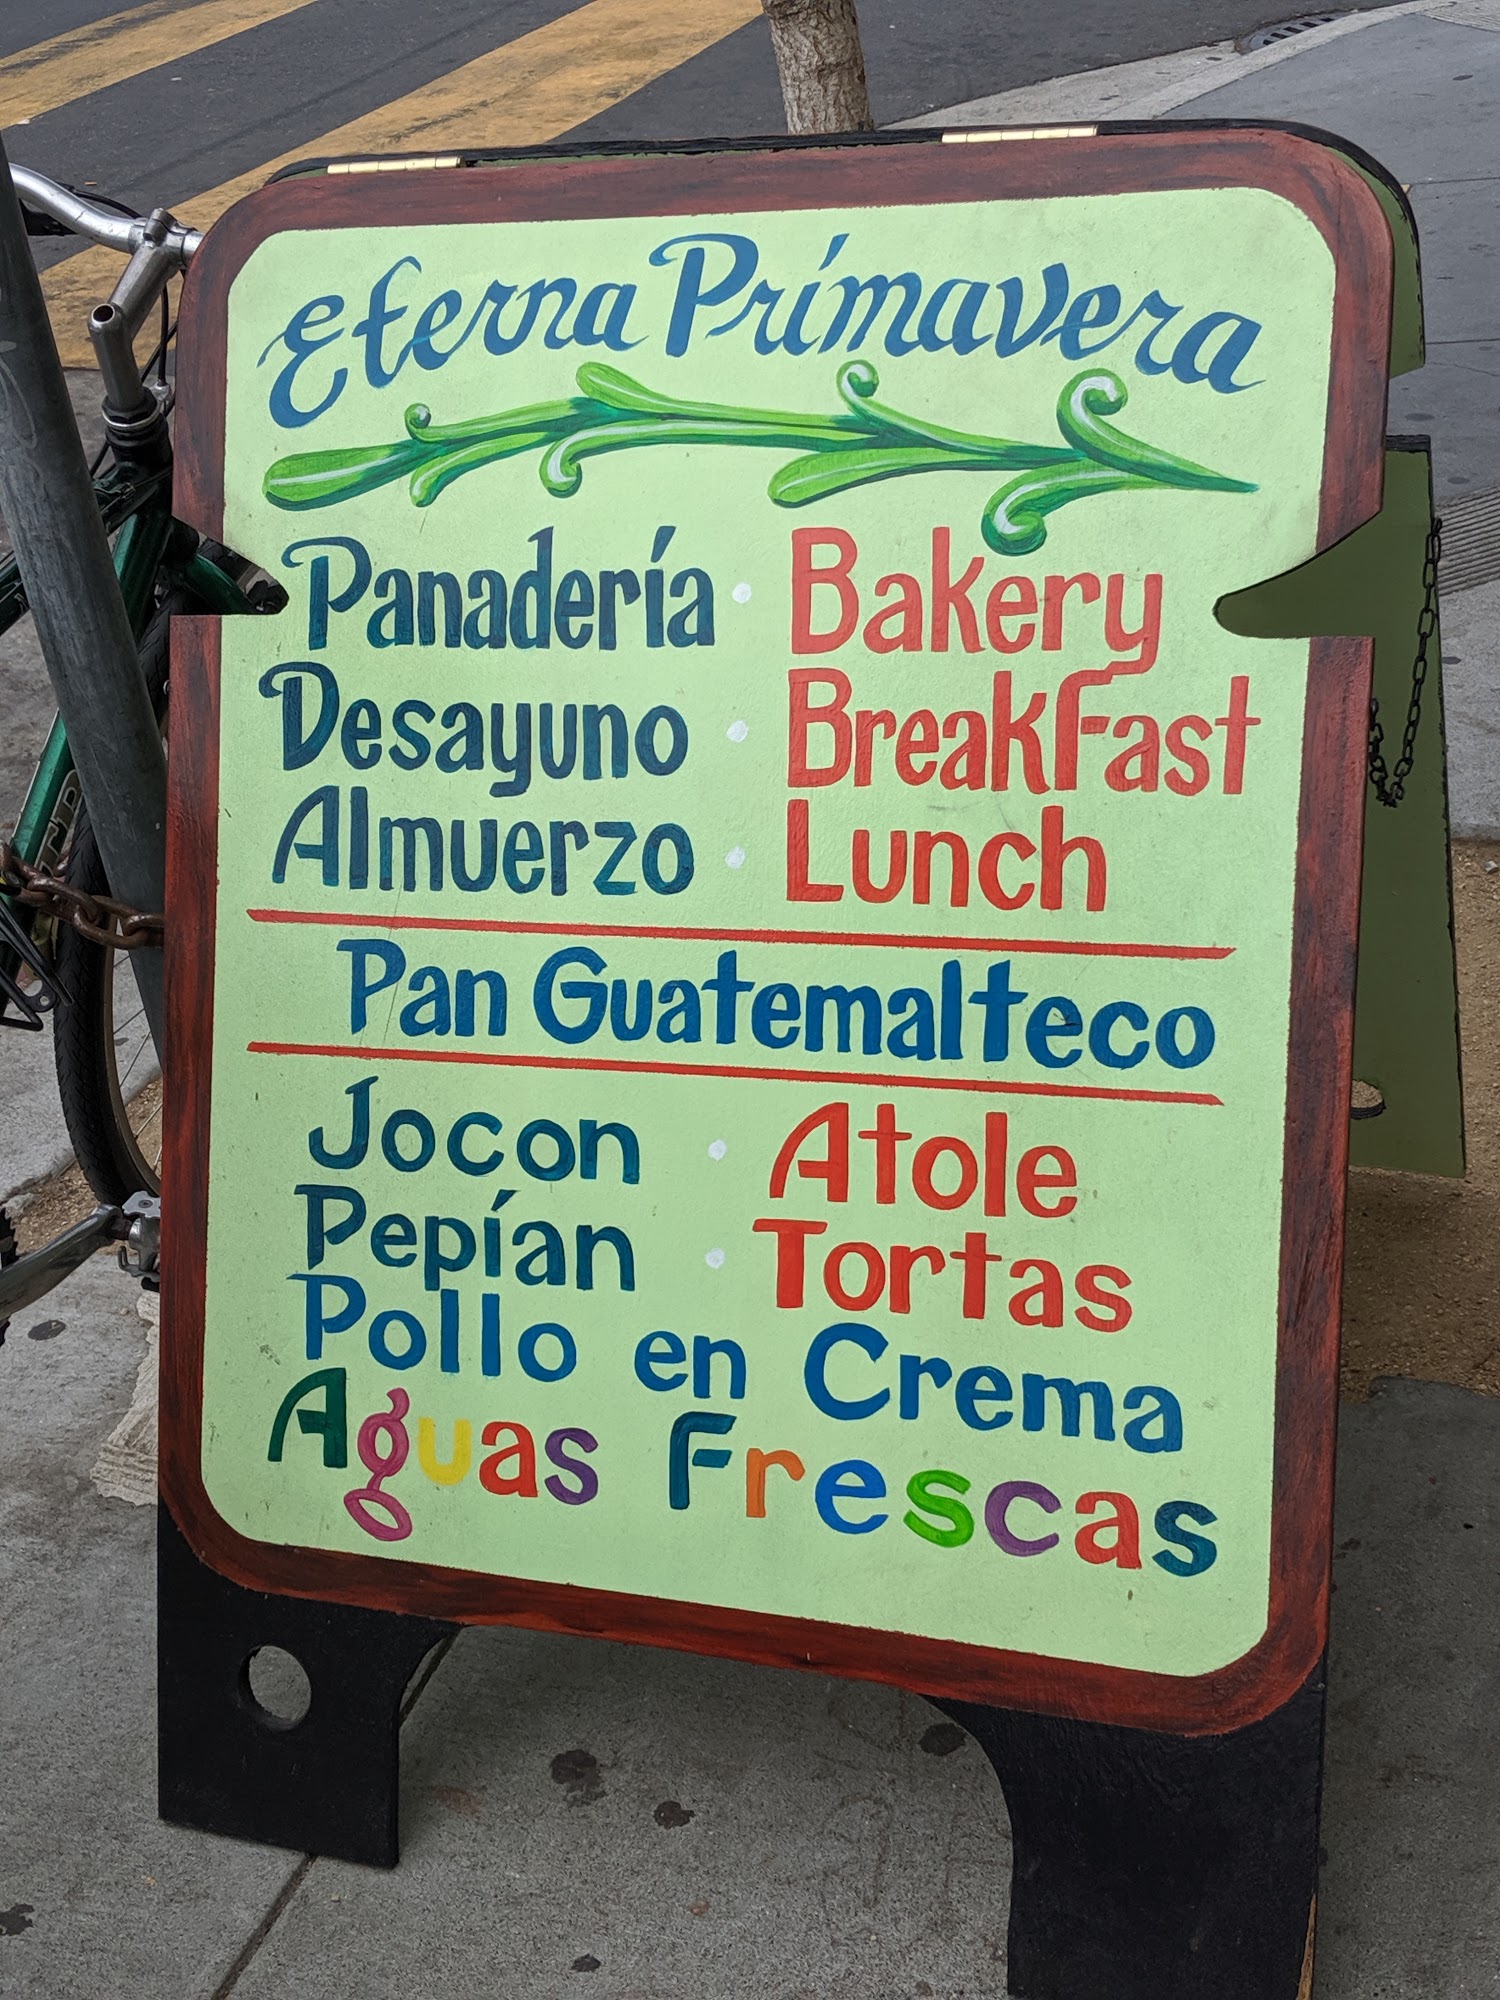 Eterna Primavera
Panadería · Bakery
Desayuno · Breakfast
Almuerzo · Lunch
Pan Guatemalteco
Jocon · Atole
Pepían · Tortas
Pollo en Crema
Aguas Frescas